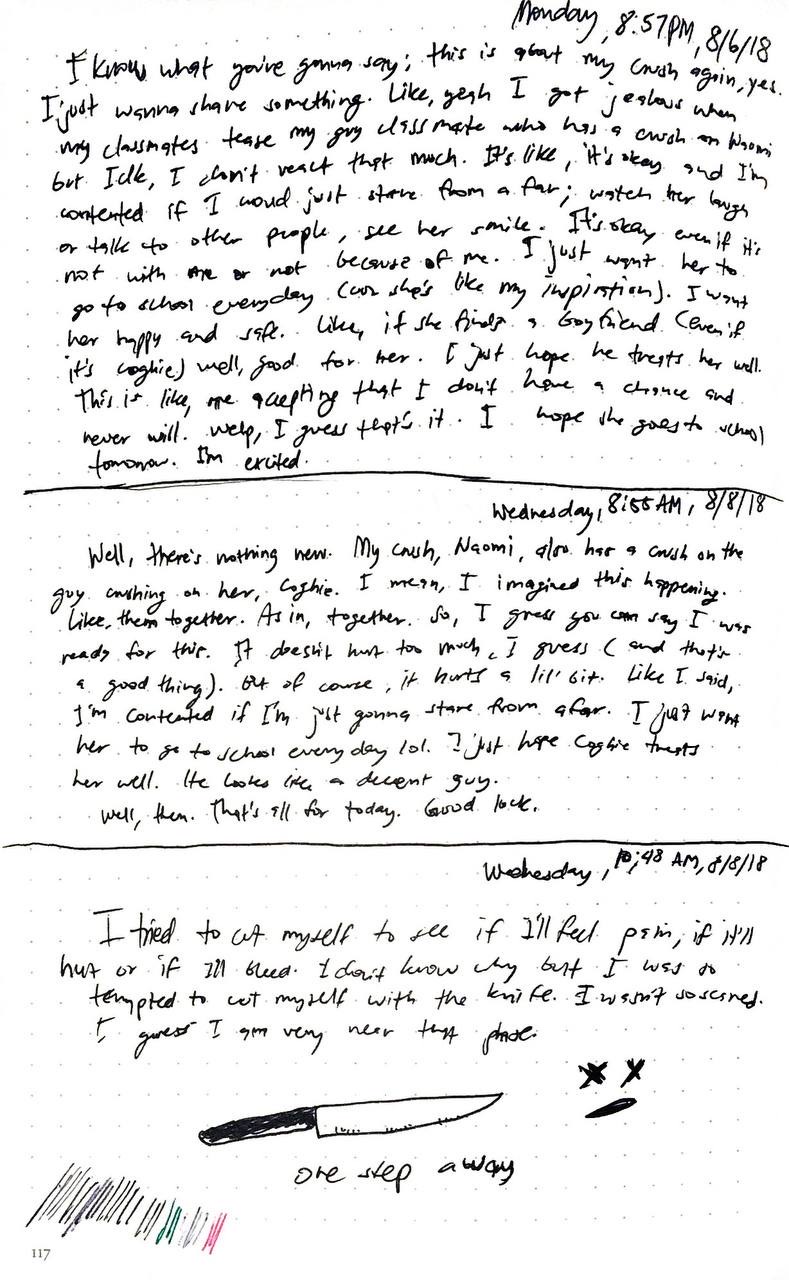 Monday, 8:57PM, 8/6/18
I know what you're gonna say; this is about my crush again, yes.
I just wanna share something. Like, yeah I got jealous when
my classmates tease my guy classmate who has a crush on Naomi
but Idk, I don't react that much. It's like, it's okay and I'm
contented if I would just stare from a far; watch her laugh
or talk to other people, see her smile. It's okay even if it's
not with me or not because of me. I just want her to
go to school everyday (cuz she's like my inspiration). I want
her happy and safe. Like, if she finds a boyfriend (even if
it's Coghie) well, good for her. I just hope he treats her well.
This is like, me accepting that I don't have a chance and
never will. Welp, I guess that's it. I hope she goes to school
tomorrow. I'm excited.
Wednesday, 8:55 AM, 8/8/18
Well, there's nothing new. My crush, Naomi, also has a crush on the
guy crushing on her, Coghie. I mean, I imagined this happening.
Like, them together. As in, together. So, I guess you can say I was
ready for this. It doesn't hurt too much, I guess (and that's
a good thing). But of course, it hurts a lil' bit. Like I said,
I'm contented if I'm just gonna stare from afar. I just want
her to go to school everyday lol. I just hope Coghie treats
her well. He looks like a decent guy.
Well, then. That's all for today. Good luck.
Wednesday, 10:48 AM, 8/8/18
I tried to cut myself to see if I'll feel pain, if it'll
hurt or if I'll bleed. I don't know why but I was so
tempted to cut myself with the knife. I wasn't so scared.
I guess I am very near that phase.
one step away
117